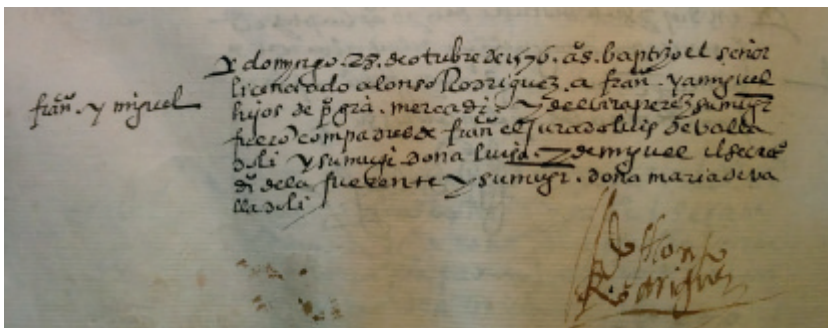 franco. y miguel
y domingo .28. de otubre de 1576. as. baptizo el señor
licenciado alonso Rodriguez. a franco. y a miguel
hijos de po gra. mercader. y de clara perez su mugr
fuero compadres de franco el jurado luis de valla
doli y su mugr. doña luisa. y de miguel el secreo
do de la fuente y su mugr. doña maria de va
lladoli
Alonso
Rodriguez